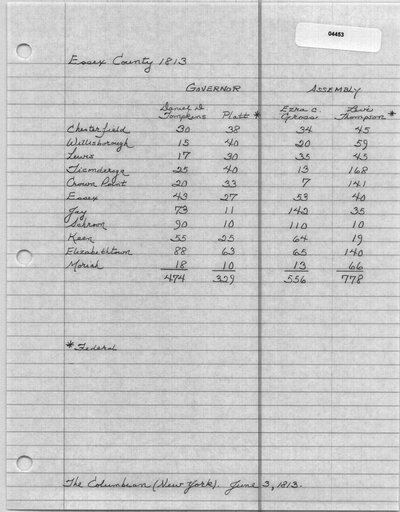 04453
Essex County 1813
GOVERNOR ASSEMBLY
Daniel D Ezra C. Levi
Tompkins Platt * Gross Thompson *
Chesterfield 30 38 34 45
Willisborough 15 40 20 59
Lewis 17 30 35 45
Ticonderoga 25 40 13 168
Crown Point 20 33 7 141
Essex 43 27 53 40
Jay 73 11 142 35
Schroon 90 10 110 10
Keen 55 25 64 19
Elizabethtown 88 63 65 140
Moriah 18 10 13 66
474 329 556 778
* Federal
The Columbian (New York). June 3, 1813.